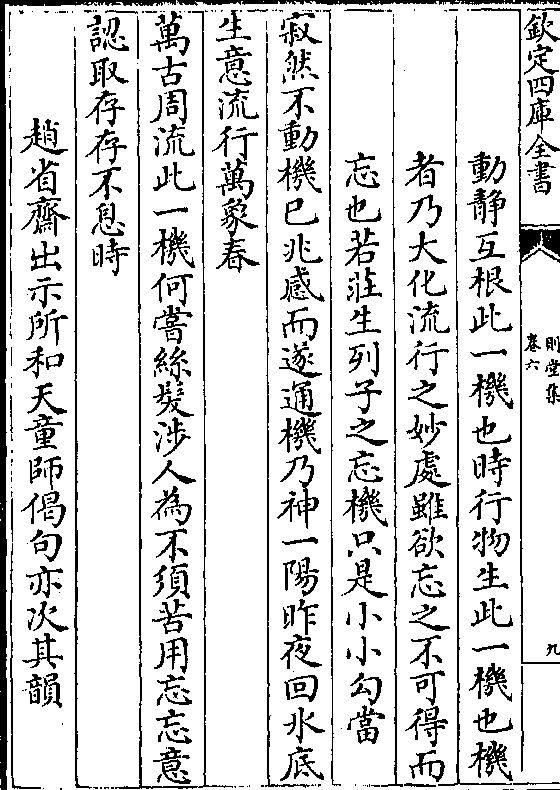 欽定四庫全書
則堂集
卷六
九
動靜互根此一機也時行物生此一機也機
者乃大化流行之妙處雖欲忘之不可得而
忘也若莊生列子之忘機只是小小勾當
寂然不動機已兆感而遂通機乃神一陽昨夜回氷底
生意流行萬象春
萬古周流此一機何嘗絲髮涉人為不須苦用忘忘意
認取存存不息時
趙省齋出示所和天童師偈句亦次其韻